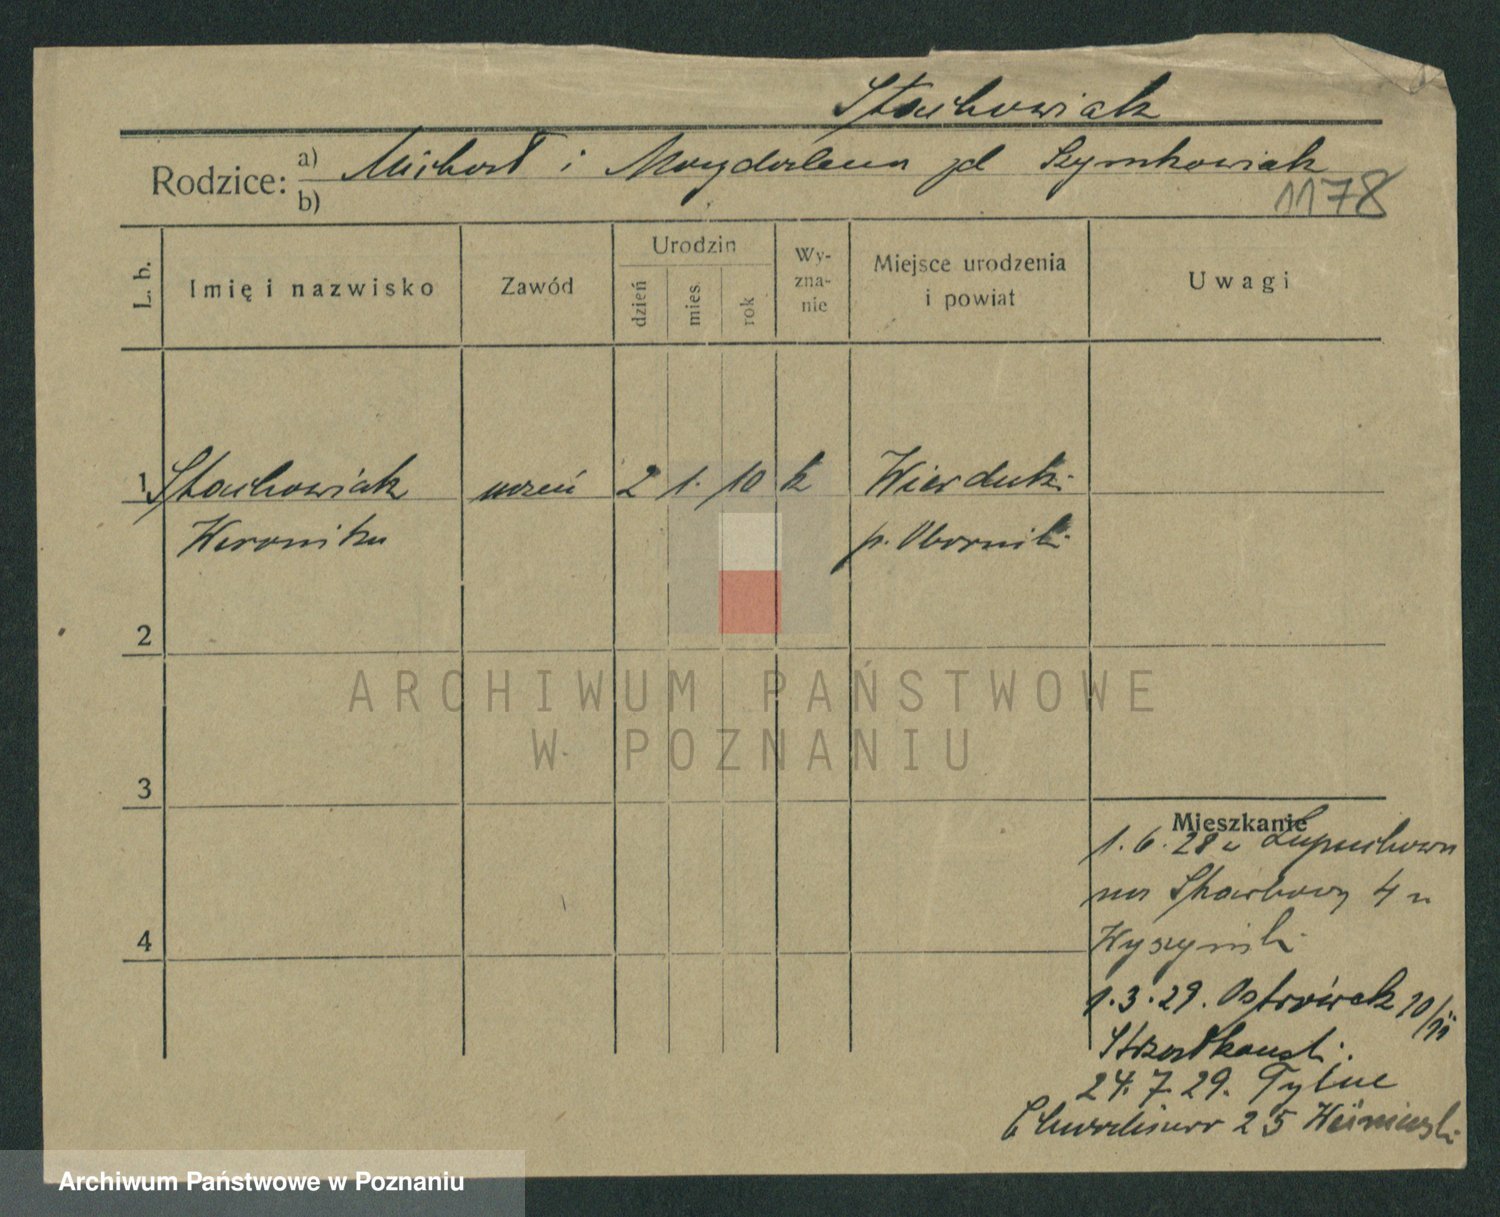 Stachowiak
Rodzice: a) Michał i Magdalena zd Szymkowiak
b)
1178
L. b.
Imię i nazwisko
Zawód
Urodzin
dzień
mies.
rok
Wy-
zna-
nie
Miejsce urodzenia
i powiat
Uwagi
1 Stachowiak uczeń 2 1. 10 k
Weronika p. Oborniki
2
3
4
Mieszkanie
1. 6. 28 z Łopuchowa
na Skarbowy 4 u
Wyszyński
1. 3. 29. Ostrówek 10/11
24. 7. 29. Tylne
Chwaliszewo 25 Wiśniewski
ARCHIWUM PAŃSTWOWE
W POZNANIU
Archiwum Państwowe w Poznaniu